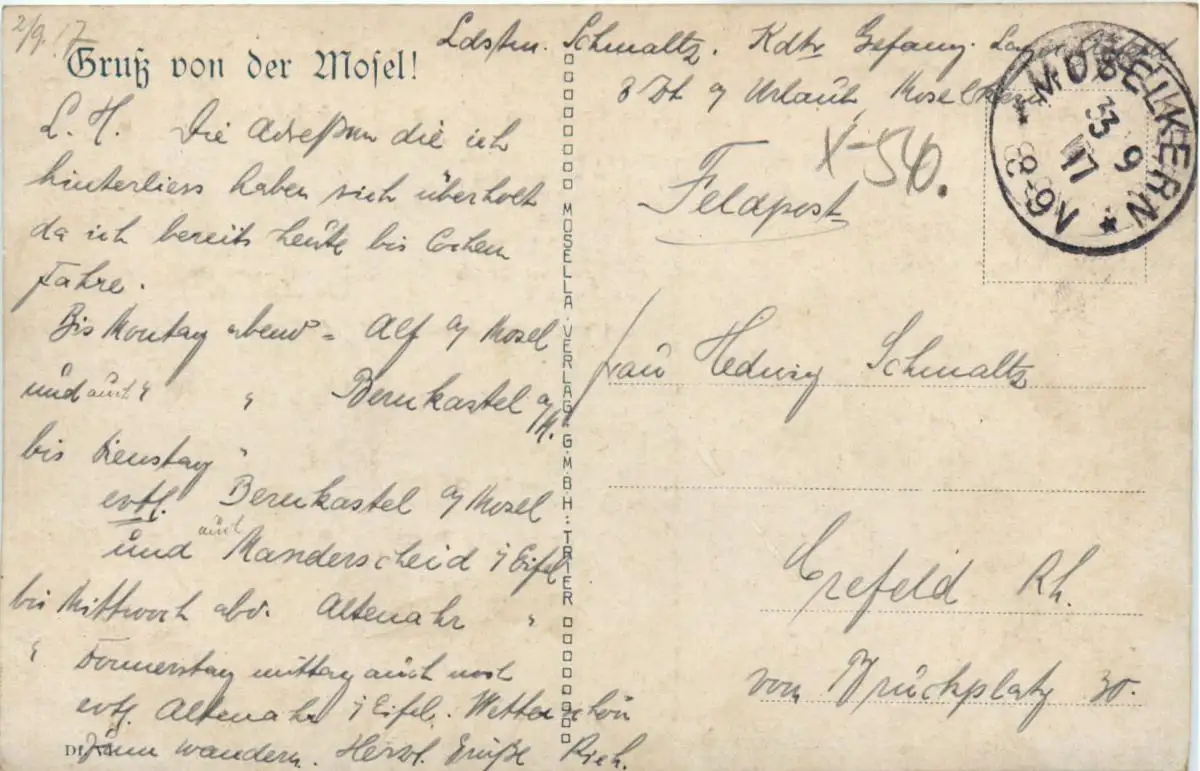 2/9 17
Gruß von der Mosel!
L. H. Die Adreßen die ich
hinterliess haben sich überholt
da ich bereits heute bis Cochem
fahre.
Bis Montag abend = Alf a/ Mosel
und auch " " Bernkastel a/M.
bis Dienstag "
evtl. Bernkastel a/ Mosel
und auch Manderscheid i/ Eifel
bis Mittwoch abd. Altenahr "
" Donnerstag mittag auch noch
evtl. Altenahr i/ Eifel. Wetter schön
zum wandern. Herzl. Grüße Rich.
MOSELLA-VERLAG G.M.B.H. TRIER
Ldstm. Schmaltz. Kdtr Gefang. Lager
z Zt a/ Urlaub, Moselkern
MOSELKERN
3 9
17
8-9V
X-54.
Feldpost
Frau Hedwig Schmaltz
Crefeld Rh.
von Bruckplatz 30.